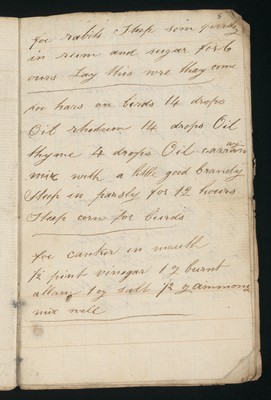 for rabits Steep som
in rum and sugar for 6
ours Lay this were thay come
for hars on birds 14 drops
Oil rhodium 14 drops Oil
thyme 4 drops Oil carraw
ay
mix with a little good brandy
Steep in parsly for 12 hours
Steep corn for birds
for canker in mouth
1/2 pint vinegar 1 z burnt
allam 1 oz salt 1/2 z ammony
mix well